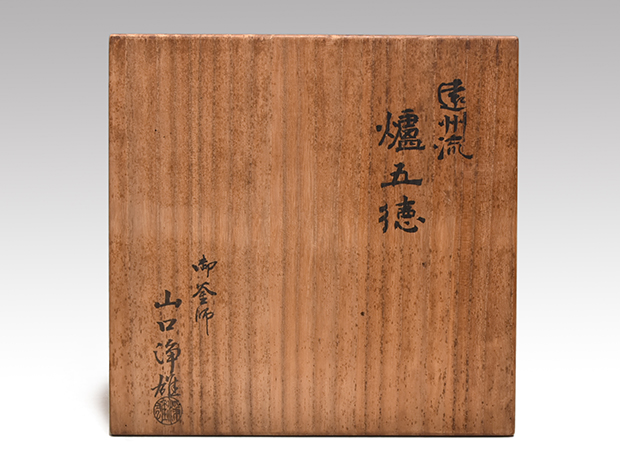 遠州流
爐五徳
御釜師
山口淨雄